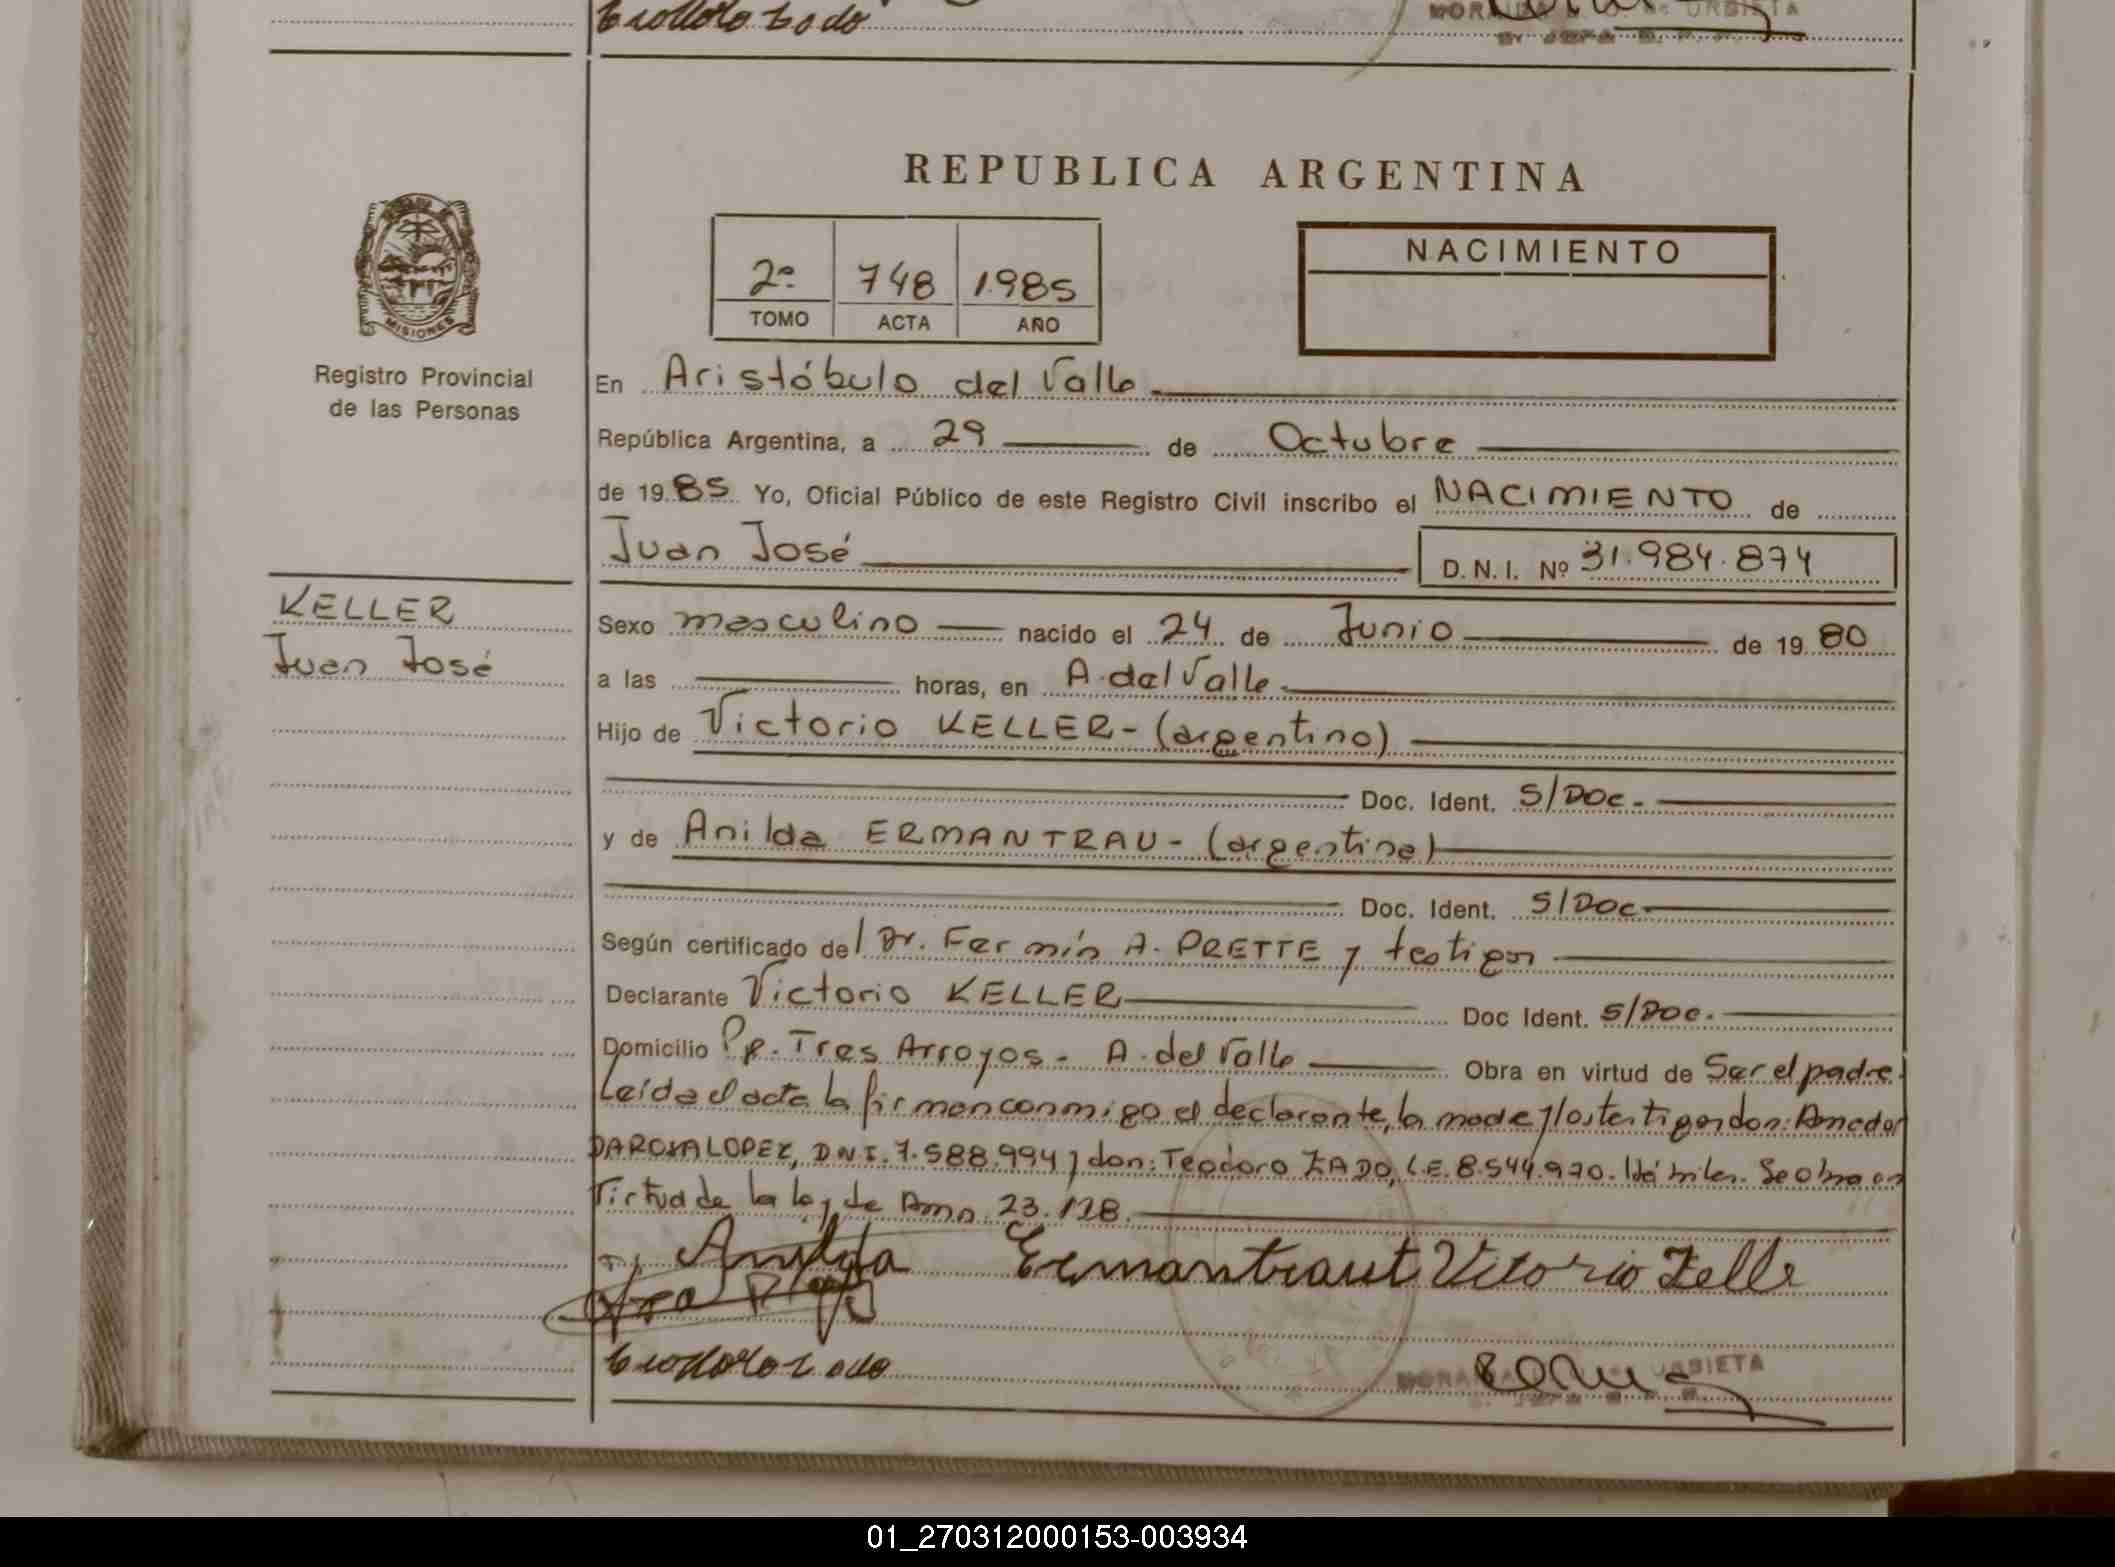 REPUBLICA ARGENTINA
2º 748 1985
TOMO ACTA AÑO
NACIMIENTO
MISIONES
Registro Provincial
de las Personas
En Aristóbulo del Valle
República Argentina, a 29 de Octubre
de 1985 Yo, Oficial Público de este Registro Civil inscribo el NACIMIENTO de
Juan José D.N.I. Nº 31.984.874
KELLER
Juan José
Sexo masculino nacido el 24 de Junio de 1980
a las horas, en A. del Valle
Hijo de Victorio KELLER - (argentino)
Doc. Ident. S/Doc.
y de Anilda ERMANTRAU - (argentina)
Doc. Ident. S/Doc
Según certificado del Dr. Fermín A. PRETTE y testigos
Declarante Victorio KELLER Doc Ident. S/Doc.
Domicilio Pje. Tres Arroyos - A. del Valle Obra en virtud de Ser el padre.
Leída el acta la firman conmigo el declarante, la madre y los testigos don: Amador
DAROSA LOPEZ, DNI. 7.588.994 y don: Teodoro ZADO, L.E. 8.544.970. Hábiles. Se obra en
virtud de la ley de Amn. 23.128.
Anilda Ermantraut Vitorio Zelle
URBIETA
01_270312000153-003934